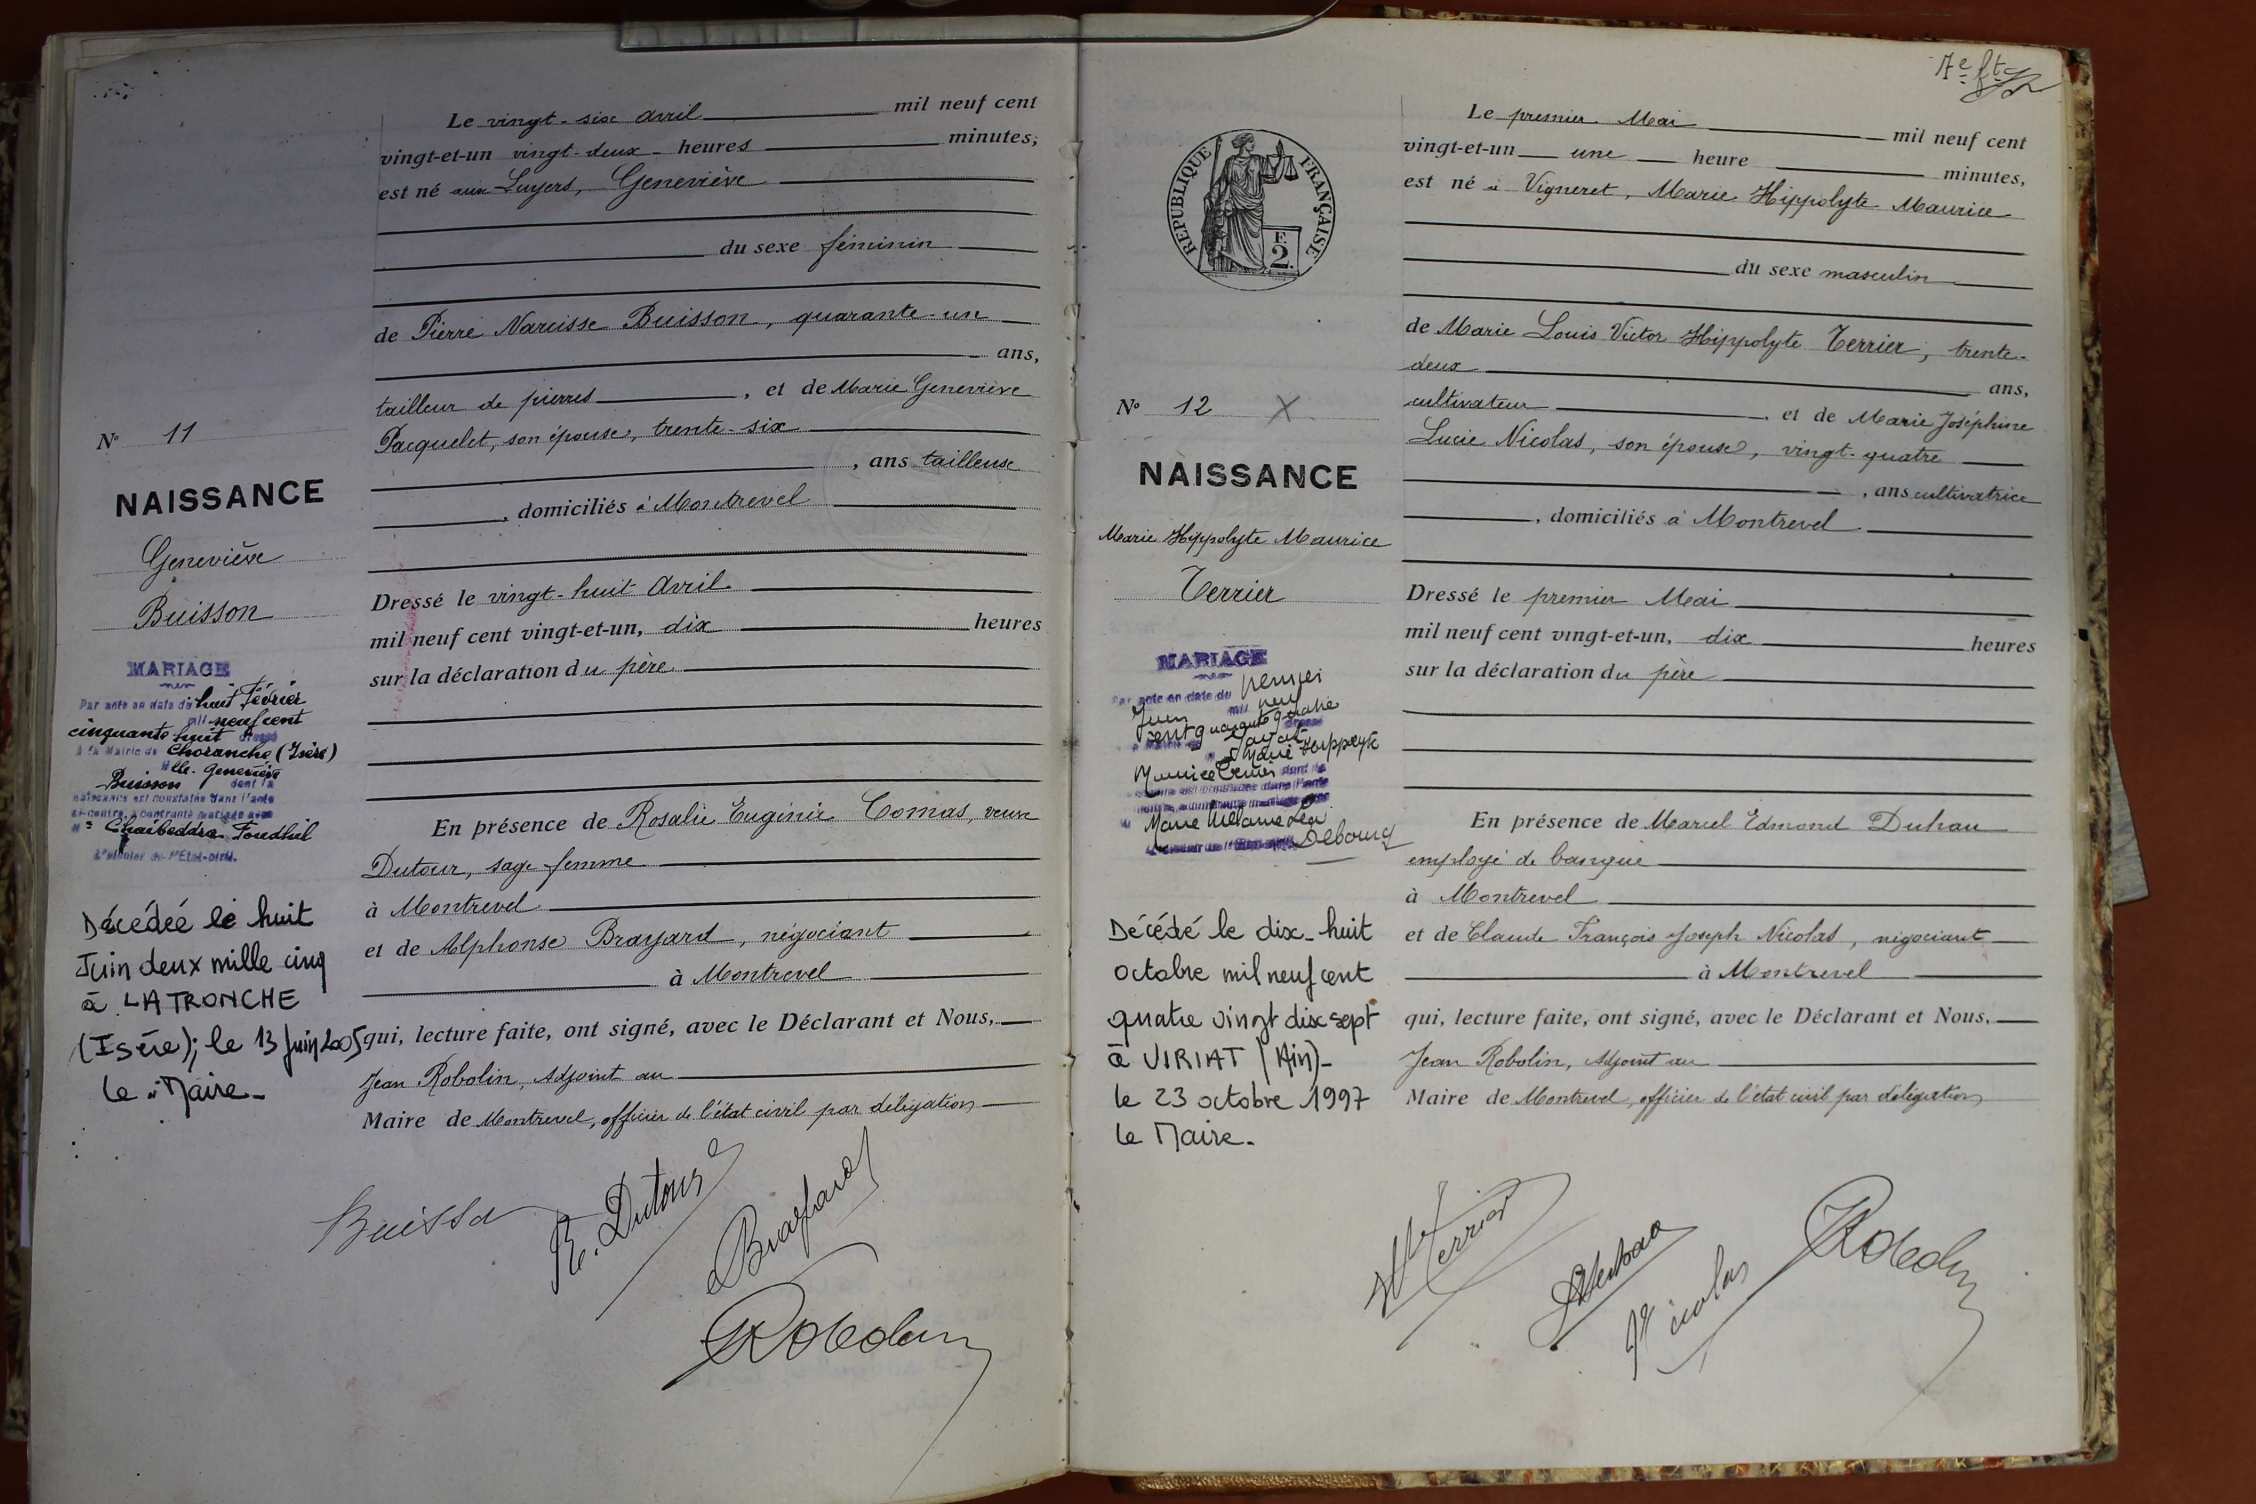 Le vingt-six avril mil neuf cent
vingt-et-un vingt-deux heures minutes,
est né aux Luyers, Geneviève
du sexe féminin
de Pierre Narcisse Buisson, quarante-un
ans,
tailleur de pierres, et de Marie Geneviève
Pacquelet, son épouse, trente-six
, ans tailleuse
, domiciliés à Montrevel
Dressé le vingt-huit Avril
mil neuf cent vingt-et-un, dix heures
sur la déclaration du père
En présence de Rosalie Eugénie Comas, veuve
Dutour, sage-femme
à Montrevel
et de Alphonse Brayard, négociant
à Montrevel
qui, lecture faite, ont signé, avec le Déclarant et Nous,
Jean Robolin, Adjoint au
Maire de Montrevel, officier de l'état civil par délégation
N° 11
NAISSANCE
Geneviève
Buisson
MARIAGE
Par acte en date du huit Février
mil neuf cent
cinquante huit dressé
à la Mairie de Choranche (Isère)
Mlle. Geneviève
Buisson dont la
naissance est constatée dans l'acte
ci-contre, a contracté mariage avec
M Chaibeddra Foudhil
L'officier de l'Etat-civil.
Décédée le huit
Juin deux mille cinq
à LA TRONCHE
(Isère); le 13 Juin 2005
Le Maire.
Buisson
R. Dutour
Brayard
Robolin
7e ft
RÉPUBLIQUE FRANÇAISE
F.
2.
Le premier Mai mil neuf cent
vingt-et-un une heure minutes,
est né à Vigneret, Marie Hippolyte Maurice
du sexe masculin
de Marie Louis Victor Hippolyte Terrier, trente-
deux ans,
cultivateur, et de Marie Joséphine
Lucie Nicolas, son épouse, vingt-quatre
, ans cultivatrice
, domiciliés à Montrevel
Dressé le premier Mai
mil neuf cent vingt-et-un, dix heures
sur la déclaration du père
En présence de Marcel Edmond Duhau
employé de banque
à Montrevel
et de Claude François Joseph Nicolas, négociant
à Montrevel
qui, lecture faite, ont signé, avec le Déclarant et Nous,
Jean Robolin, Adjoint au
Maire de Montrevel, officier de l'état civil par délégation
N° 12 X
NAISSANCE
Marie Hippolyte Maurice
Terrier
MARIAGE
Par acte en date du premier
Juin mil neuf
cent quarante quatre dressé
Marie Hippolyte
Maurice Terrier dont la
M Marie Mélanie Léa
Debourg
Décédé le dix-huit
octobre mil neuf cent
quatre vingt dix sept
à VIRIAT (Ain)-
le 23 octobre 1997
Le Maire.
Terrier
Duhau
Nicolas
Robolin